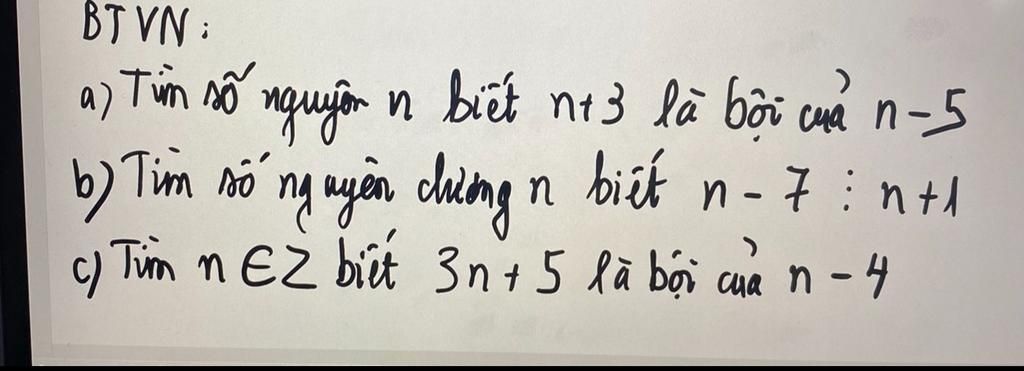 BTVN:
a) Tìm số nguyên n biết n+3 là bội của n-5
b) Tìm số nguyên dương n biết n - 7 ⋮ n+1
c) Tìm n ∈ Z biết 3n + 5 là bội của n - 4